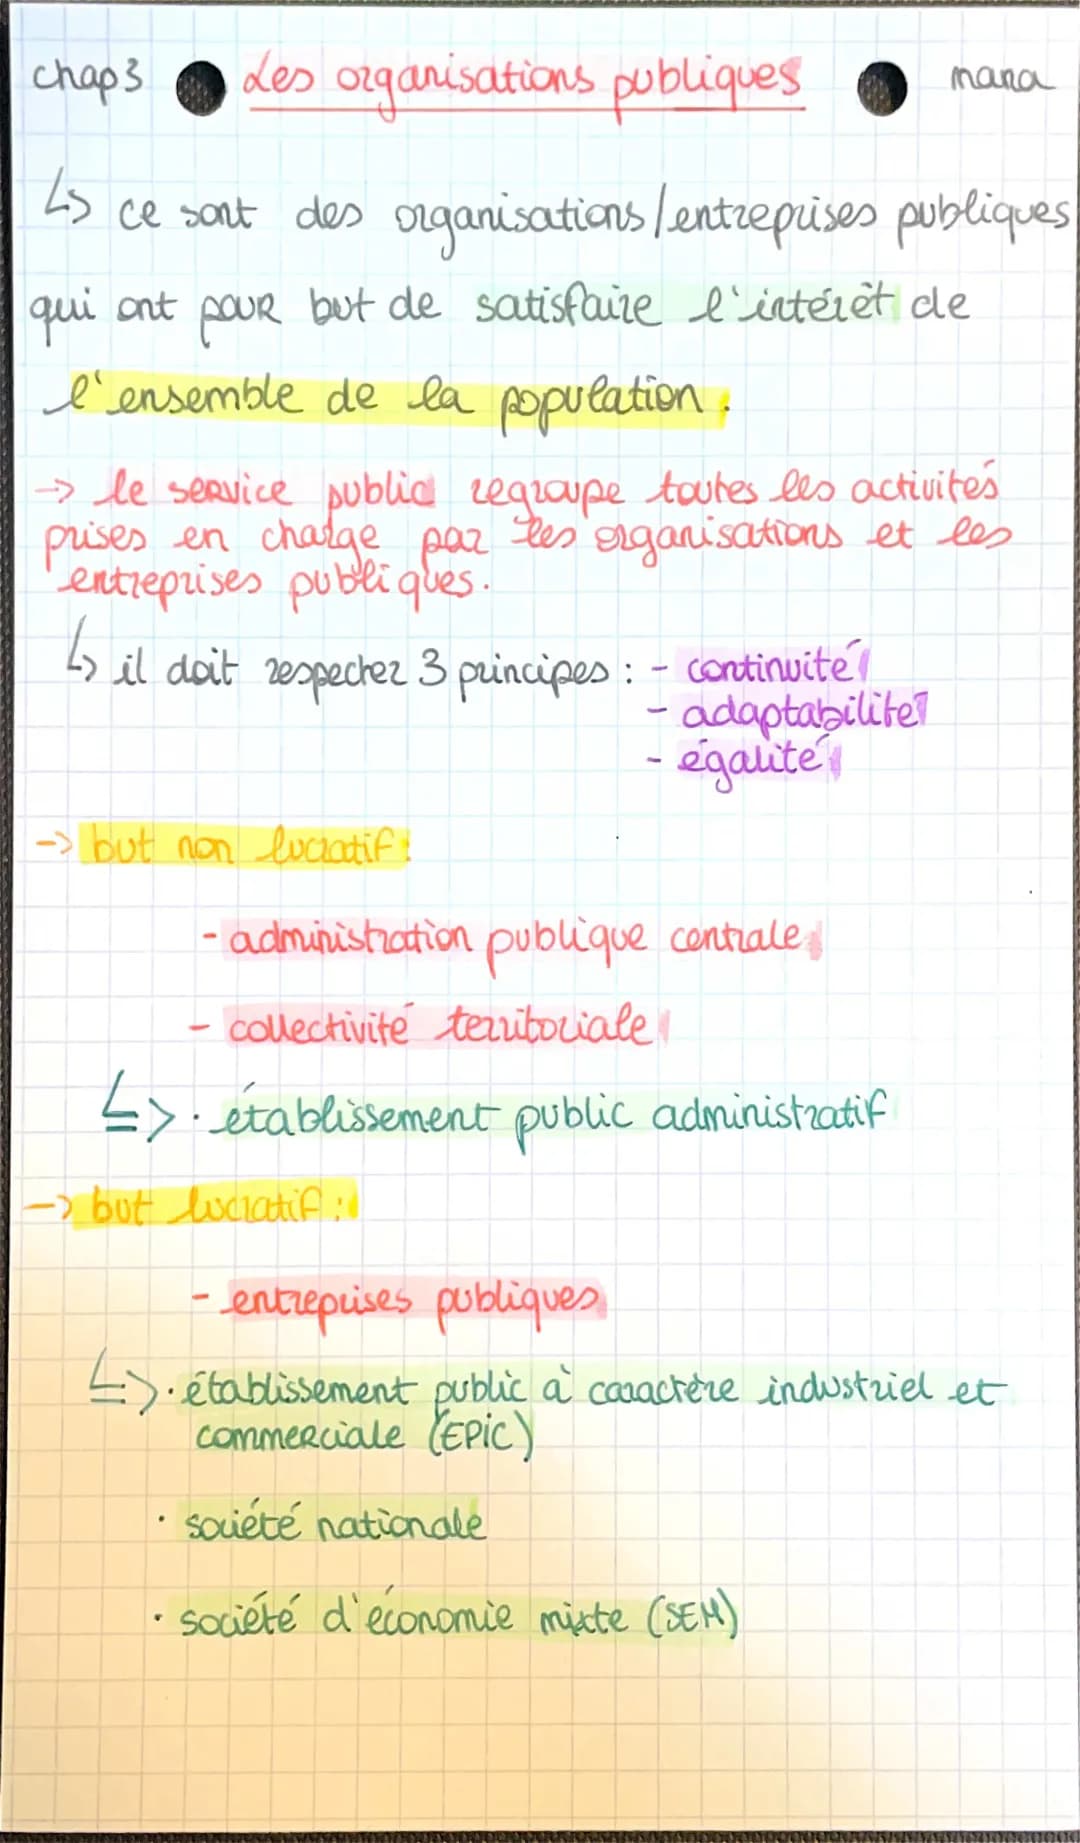 chap 3 Les organisations publiques mana
↳ ce sont des organisations/entreprises publiques
qui ont pour but de satisfaire l'intérêt de
l'ensemble de la population.
→ le service public regroupe toutes les activités
prises en charge par les organisations et les
entreprises publiques.
↳ il doit respecter 3 principes : - continuité
- adaptabilité
- égalité
→ but non lucratif :
- administration publique centrale
- collectivité territoriale
↳ · établissement public administratif
→ but lucratif :
- entreprises publiques
↳ · établissement public à caractère industriel et
commerciale (EPIC)
· société nationale
· société d'économie mixte (SEM)